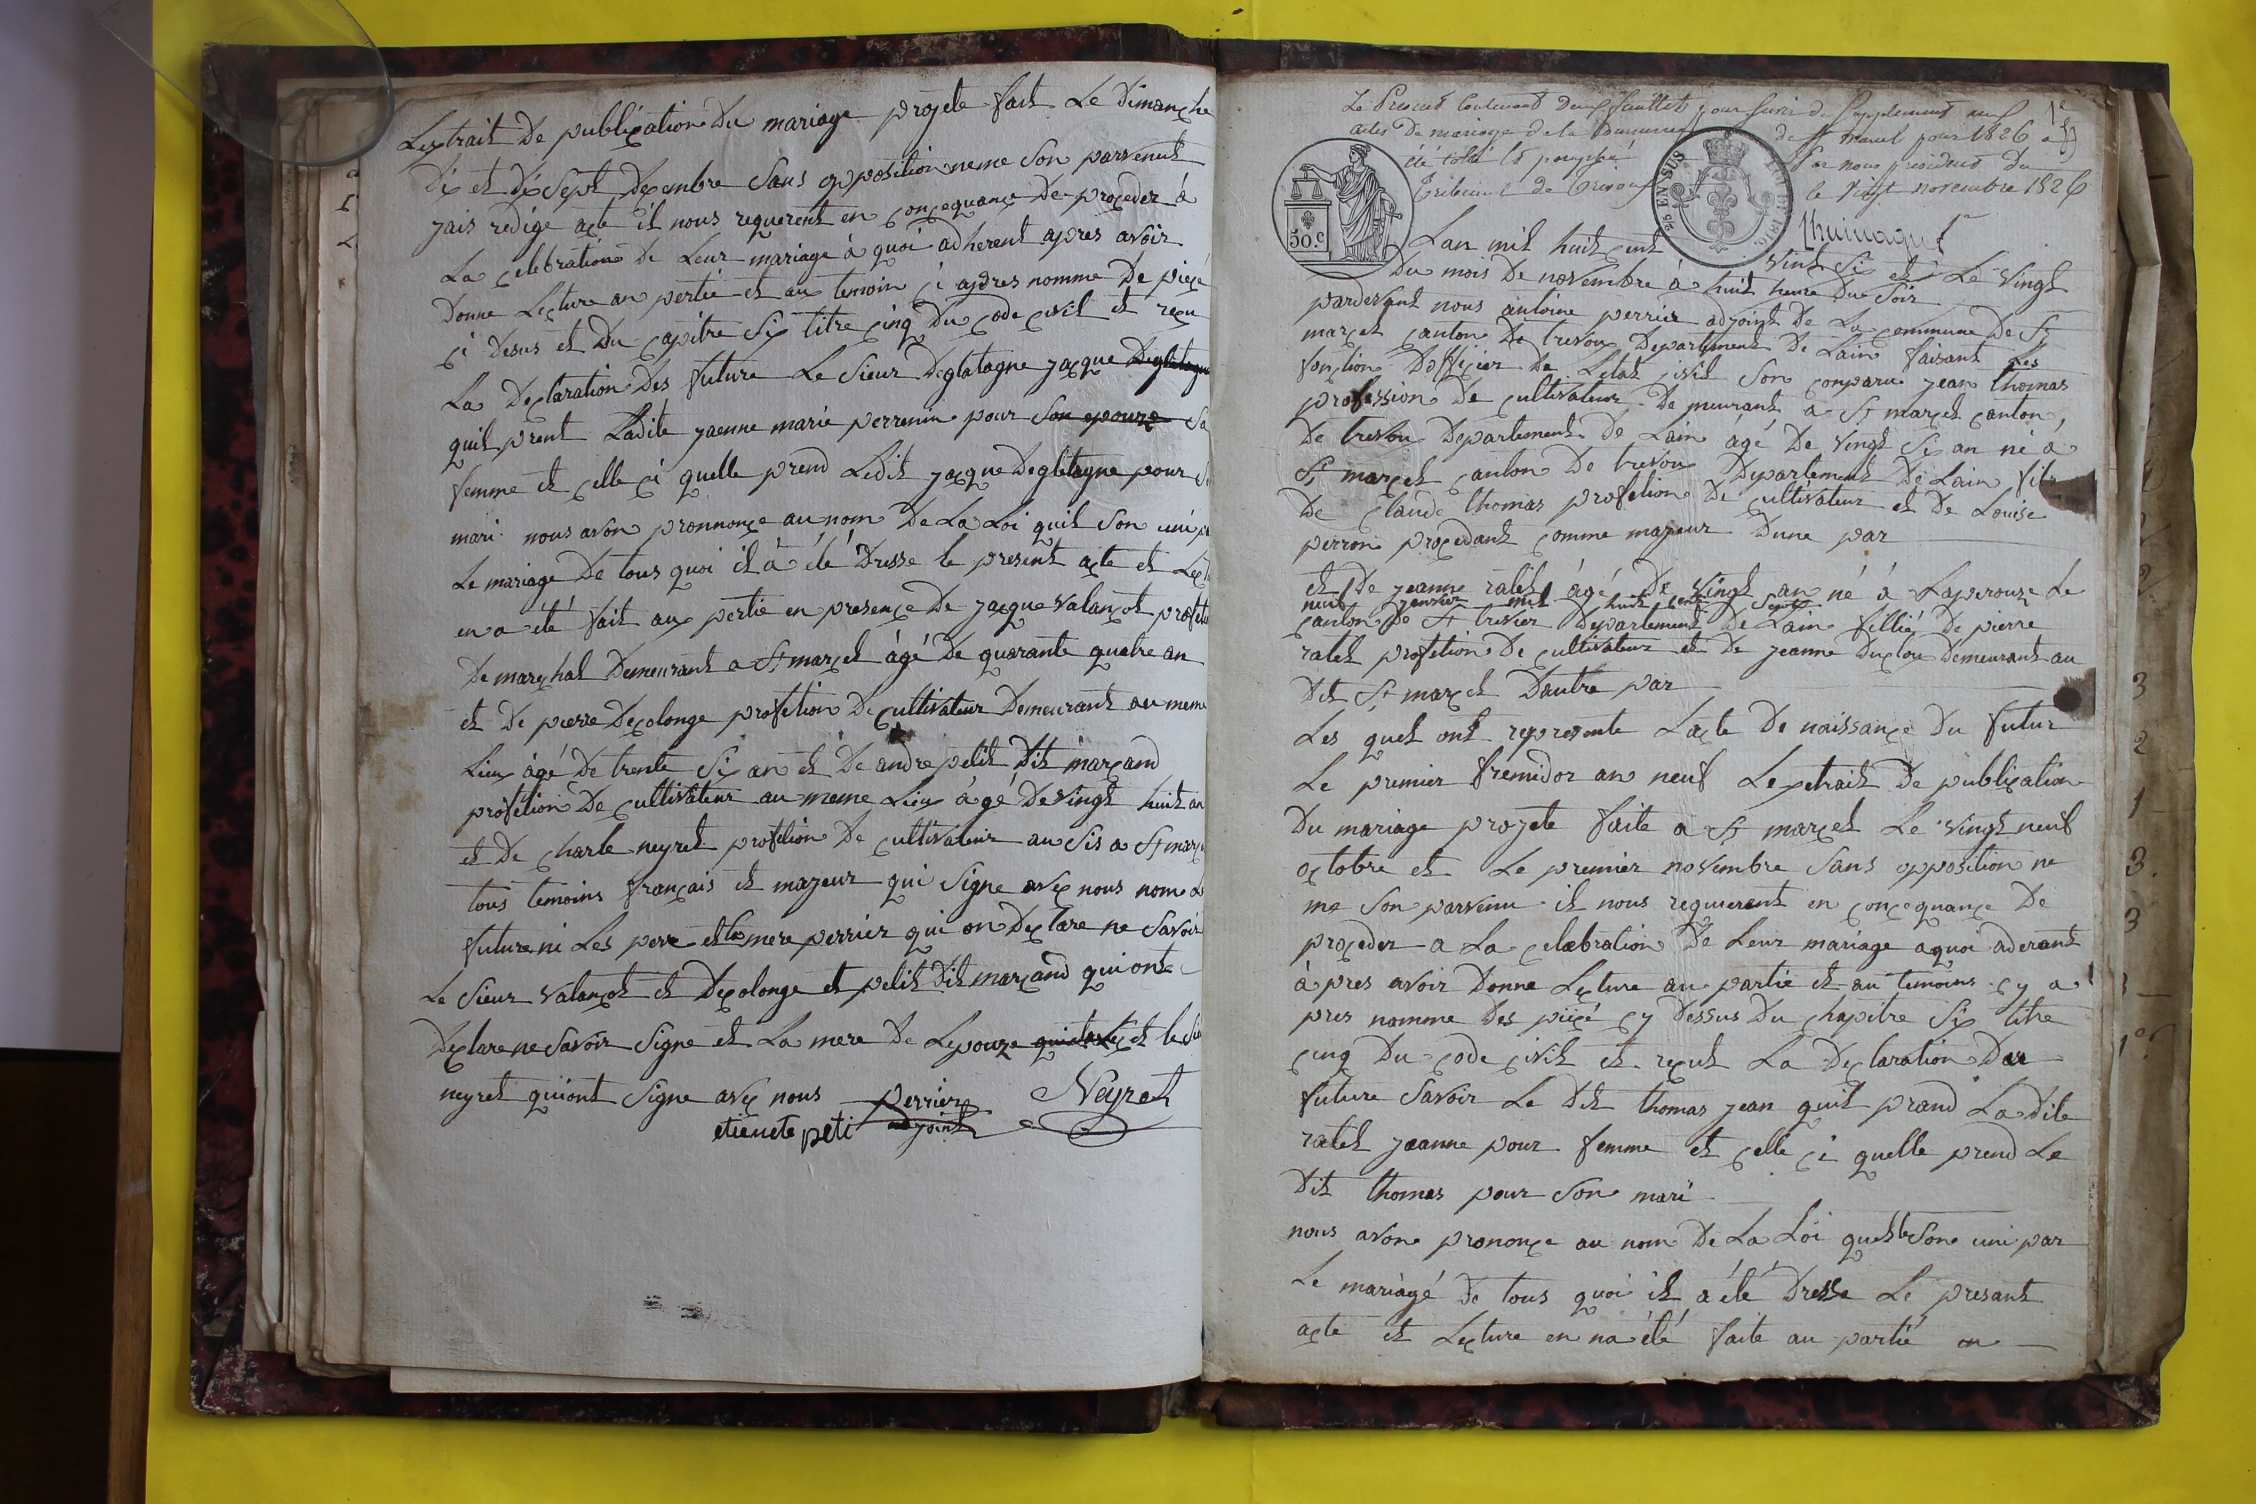 Lextrait De publication Du mariage projete fait Le Dimanche
Dix et Dix Sept Decembre Sans opposition neme Son parvenut
jais redige acte il nous requerent en consequance De proceder à
La celebration De Leur mariage à quoi adherent apres avoir
Donne Lecture au pertie et au temoin ci apres nomme De piece
ci Desus et Du capitre Six titre cinq Du code civil et reçu
La Declaration Des future Le Sieur Deglatagne jacque Deglatagne
quil prent Ladite jaenne marie perrenin pour Son epouze Sa
femme et celle ci quelle prend Ledit jacque Degletagne pour
mari nous avon prononce au nom De La Loi quil Son uni
Le mariage De tous quoi il à été Dresse le present acte et
en a été fait aux pertie en presence De jacque valançot
De marechal Demeurant a St marcel âgé De quarante quatre an
et De pierre Decolonge profetion De cultivateur Demeurant au meme
Lieu âgé De trente Six an et De andre petit Dit marcand
profetion De cultivateur au meme Lieu âgé De vingt huit an
et De charle neyret profetion De cultivateur au Sis a St
tous temoins français et majeur qui Signe avec nous nom
future ni Les pere et la mere perrier qui on Declare ne Savoir
Le Sieur valançot et Decolonge et petit Dit marcand qui onte
Declare ne Savoir Signe et La mere De Lepouze et le
neyret qui ont Signe avec nous perrier Neyret
etienete peti adjoint
Le Present Contenant deux feuillets pour servir de Supplement aux 1er
actes De mariage de la Commune de St marcel pour 1826 a
été coté et paraphé par nous president du
Tribunal de Trevoux le vingt novembre 1826
50.c
2/5 EN SUS
Lan mil huit cent vint Six et Le vingt
Du mois De novembre à huit heure Du Soir
pardevant nous antoine perrier adjoint De La commune De St
marcel canton De trevoux Departement De Lain faisant Les
fonction Dofficier De Letat civil Son conparu jean thomas
profession De cultivateur De meurant a St marcel canton
De trevou Departement De Lain âgé De vingt Six an né à
St marcel canton De trevoux Departement De Lain
De claude thomas profetion De cultivateur et De Louise
perron procedant comme majeur Dune par
et De jeanne ratet âgé De vingt an né à Laperouze Le
neuf janvier mil huit cent Sept
canton De St trivier Departement De Lain fillié De pierre
ratet profetion De cultivateur et De jeanne Duclou Demeurant au
Dit St marcel Dautre par
Les quel ont represente Lacte De naissance Du futur
Le premier fremidor an neuf Lextrait De publication
Du mariage projete faite a St marcel Le vingt neuf
octobre et Le premier novembre Sans opposition ne
me Son parvenu il nous requerent en concequance De
proceder a La celebration De Leur mariage a quoi aderant
à pres avoir Donne Lecture au partie et au temoins cy a
pres nomme Des piecé cy Dessus Du chapitre Six titre
cinq Du code civil et reçut La Declaration Des
future Savoir Le Dit thomas jean quil prand La Dite
ratet jeanne pour femme et celle ci quelle prend Le
Dit thomas pour Son mari
nous avone prononce au nom De La Loi Sone uni par
Le mariagé De tous quoi il a été Dresse Le presant
acte et Lecture en na été faite au partié en